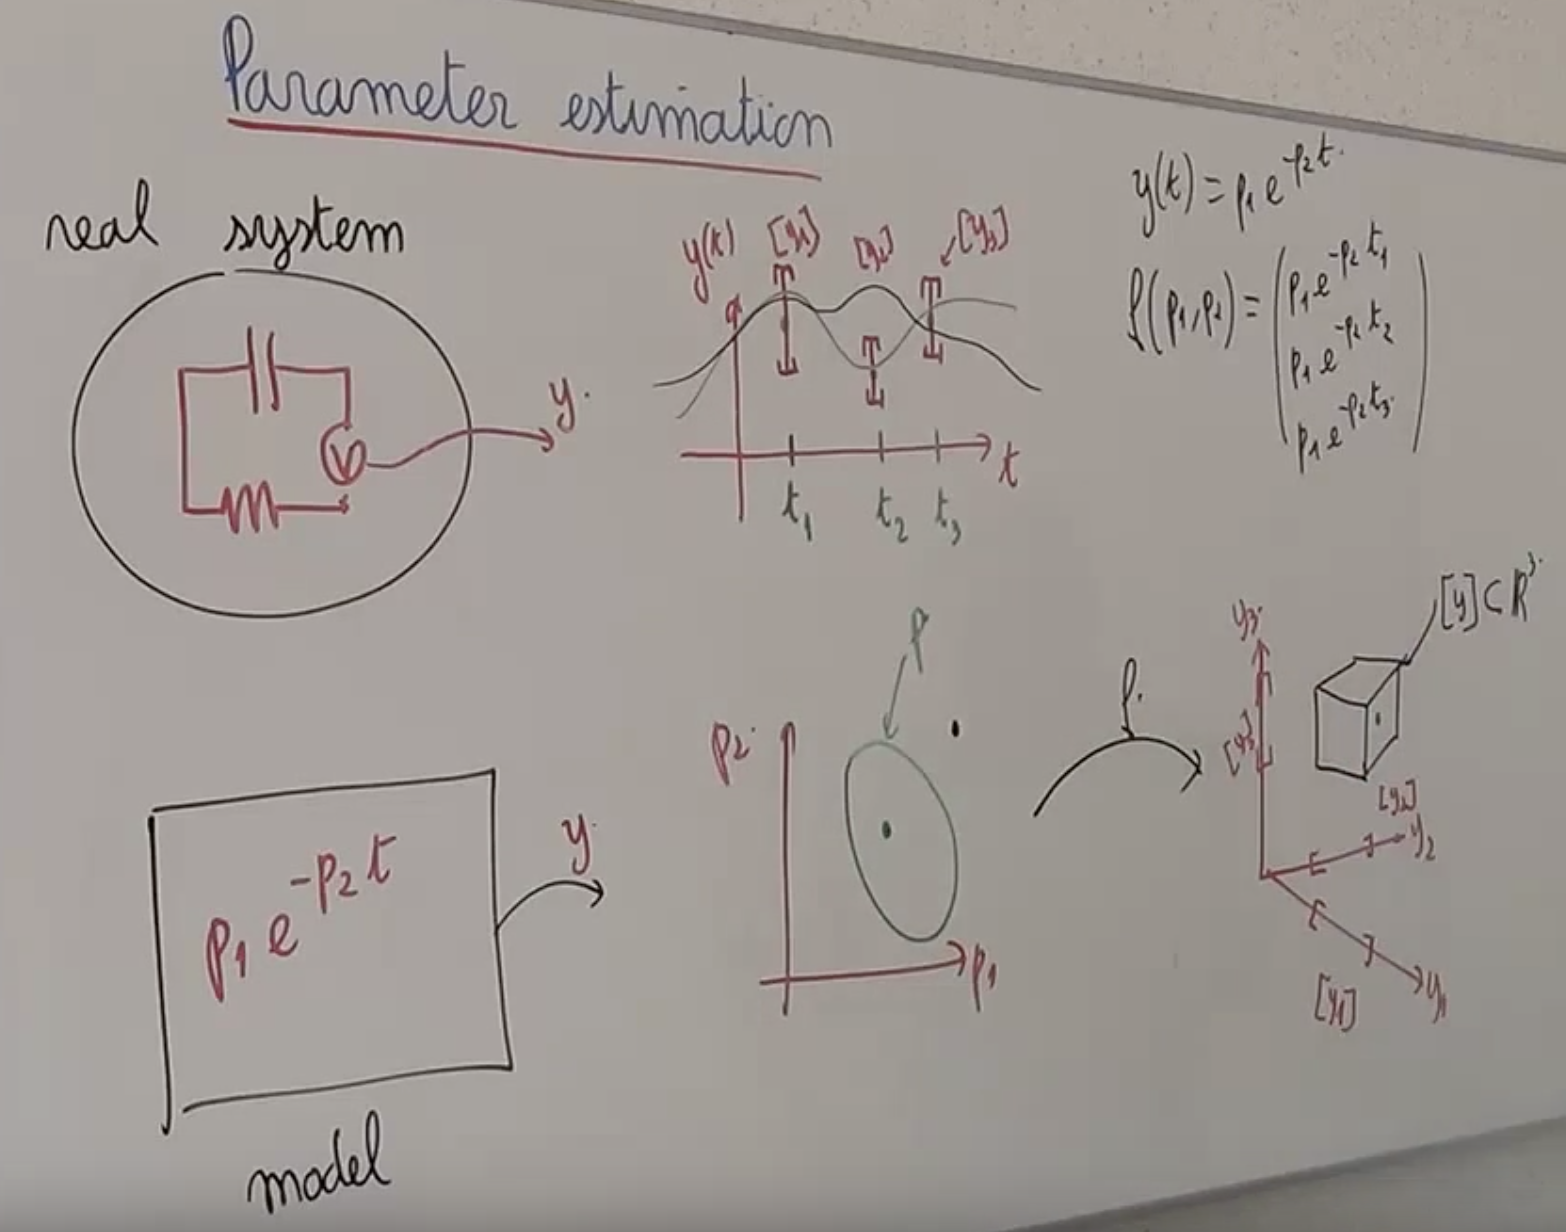 Parameter estimation
real system
y.
y(t) [y1] [y2] [y3]
t
t1 t2 t3
y(t) = p1 e^-p2 t.
f(p1, p2) = (p1 e^-p2 t1
p1 e^-p2 t2
p1 e^-p2 t3.)
p1 e^-p2 t
y.
model
P
p2.
p1
f.
y3.
[y3]
[y] ⊂ R^3.
[y2]
y2
[y1]
y1